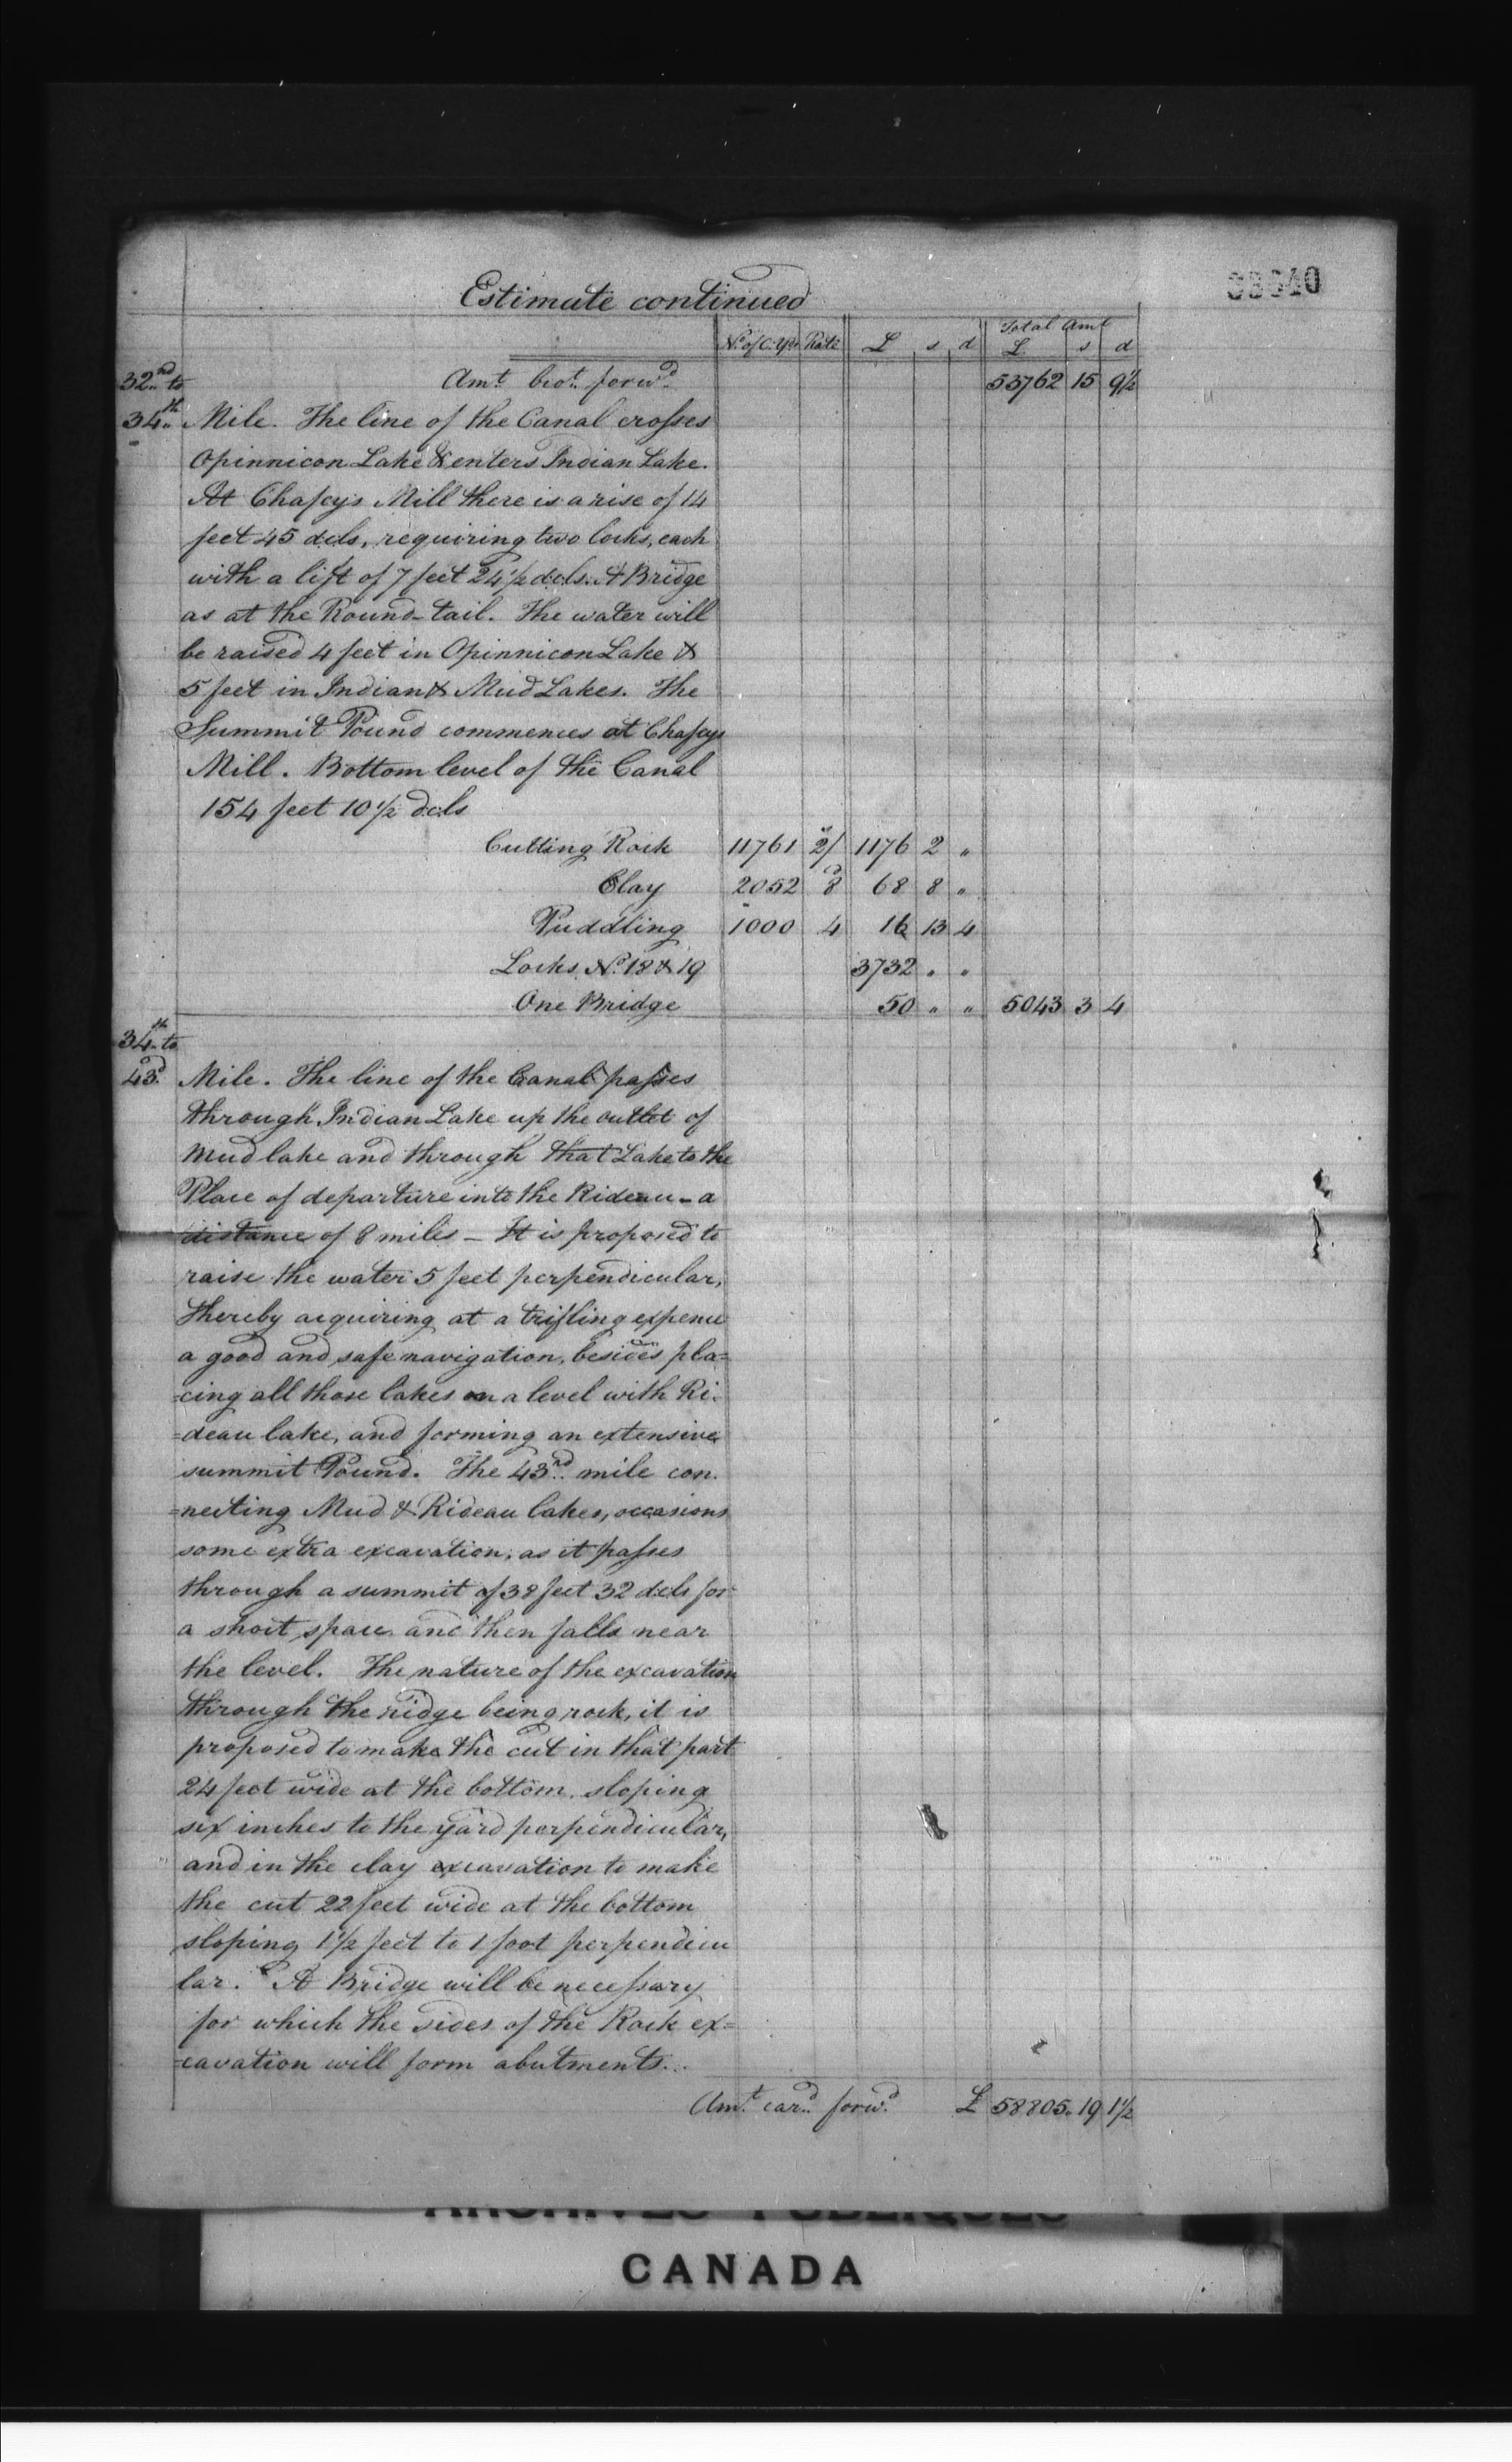 Estimate continued
No. of C. Yds Rate £ s d Total Amt £ s d
32nd to Amt brot. forwd. 53762 15 9½
34th Mile. The line of the Canal crosses
Opinnicon Lake & enters Indian Lake.
At Chafeys Mill there is a rise of 14
feet 45 dcls, requiring two locks, each
with a lift of 7 feet 24½ dcls. A Bridge
as at the Round-tail. The water will
be raised 4 feet in Opinnicon Lake &
5 feet in Indian & Mud Lakes. The
Summit Pound commences at Chafeys
Mill. Bottom level of the Canal
154 feet 10½ dcls
Cutting Rock 11761 2/ 1176 2 "
Clay 2052 8d 68 8 "
Puddling 1000 4 16 13 4
Locks No. 18 & 19 3732 " "
One Bridge 50 " " 5043 3 4
34th to
43d Mile. The line of the Canal passes
through Indian Lake up the outlet of
Mud lake and through that Lake to the
Place of departure into the Rideau - a
distance of 8 miles - It is proposed to
raise the water 5 feet perpendicular,
thereby acquiring at a trifling expence
a good and safe navigation, besides pla=
=cing all those lakes on a level with Ri=
=deau lake, and forming an extensive
summit Pound. The 43rd mile con=
=necting Mud & Rideau lakes, occasions
some extra excavation, as it passes
through a summit of 38 feet 32 dcls for
a short space and then falls near
the level. The nature of the excavation
through the ridge being rock, it is
proposed to make the cut in that part
24 feet wide at the bottom, sloping
six inches to the yard perpendicular,
and in the clay excavation to make
the cut 22 feet wide at the bottom
sloping 1½ feet to 1 foot perpendicu
lar. A Bridge will be necessary
for which the sides of the Rock ex=
=cavation will form abutments...
Amt. card. forwd. £ 58805. 19 1½
ARCHIVES PUBLIQUES
CANADA